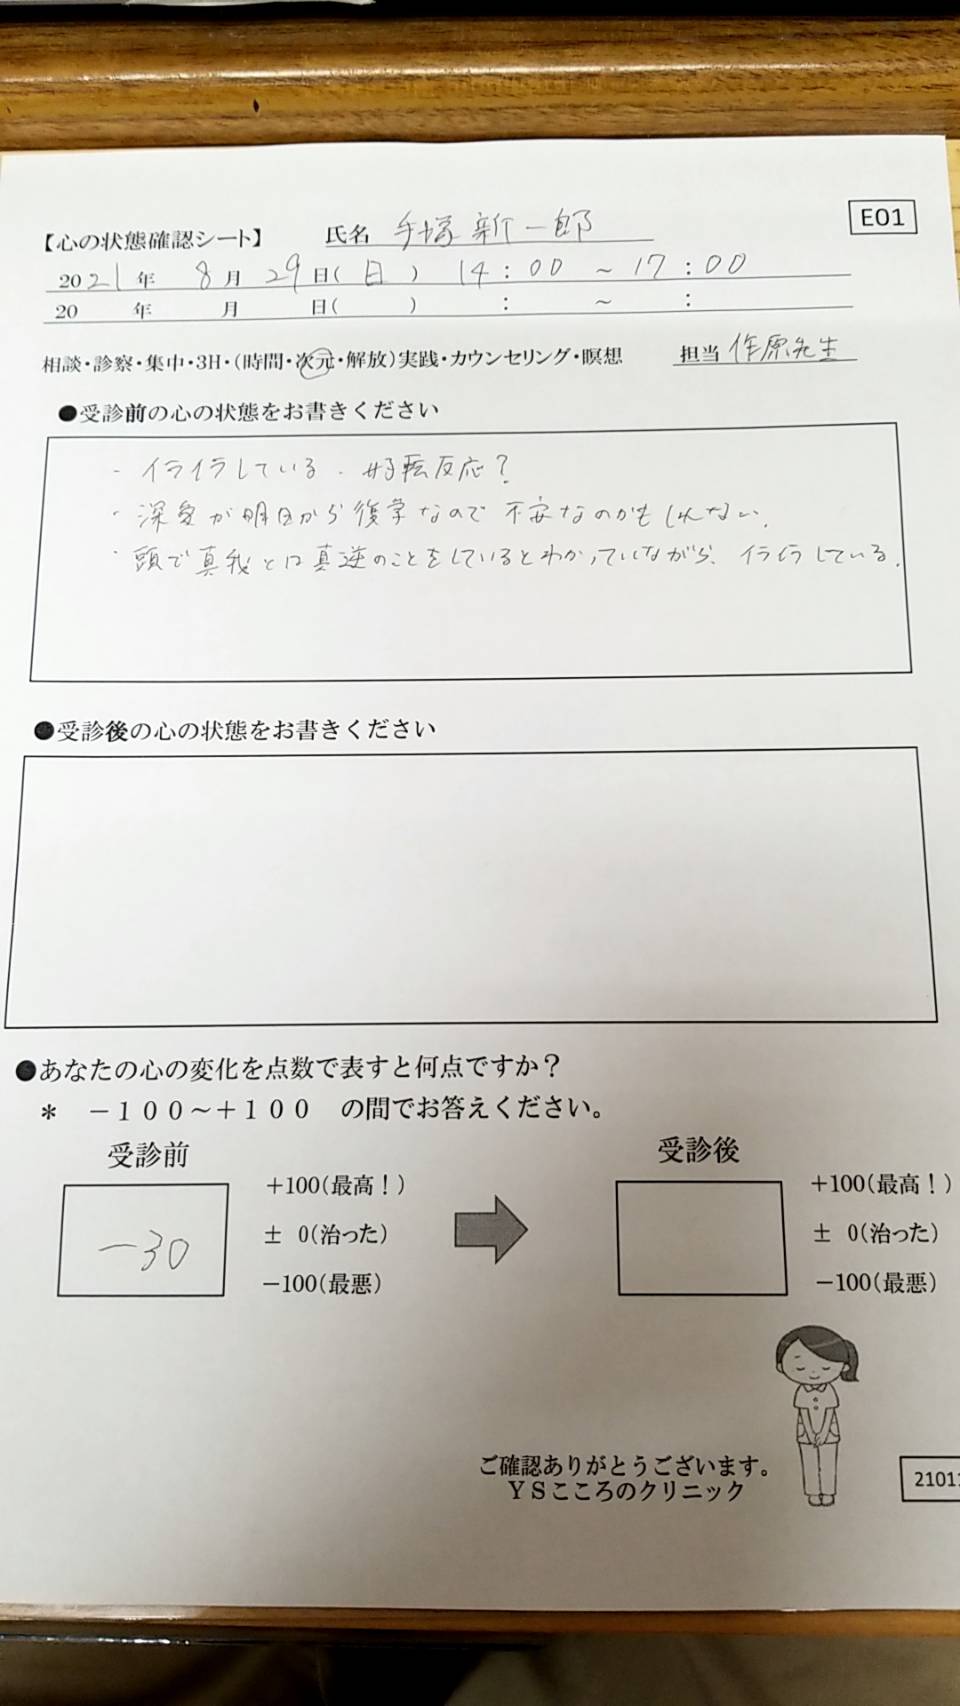 E01
【心の状態確認シート】 氏名 手塚新一郎
2021年 8月 29日(日) 14:00 ～ 17:00
20 年 月 日( ) : ～ :
相談・診察・集中・3H・(時間・次元・解放)実践・カウンセリング・瞑想 担当 作原先生
●受診前の心の状態をお書きください
・イライラしている. 好転反応?
・深愛が明日から復学なので不安なのかもしれない.
・頭で真我とは真逆のことをしているとわかっていながら、イライラしている.
●受診後の心の状態をお書きください
●あなたの心の変化を点数で表すと何点ですか？
＊ －１００～＋１００ の間でお答えください。
受診前 受診後
+100(最高！) +100(最高！)
-30 ± 0(治った) ± 0(治った)
-100(最悪) -100(最悪)
ご確認ありがとうございます。
ＹＳこころのクリニック